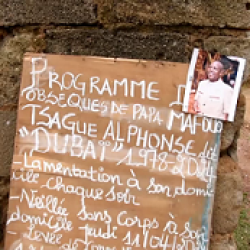 PROGRAMME
OBSEQUES DE PAPA MAFOUO
TSAGUE ALPHONSE dit
"DUBAÏ" 1978-2024
- Lamentation à son domi-
cile chaque soir
- Veillée sans Corps à son
domicile jeudi 11/04/2024
- Levée de